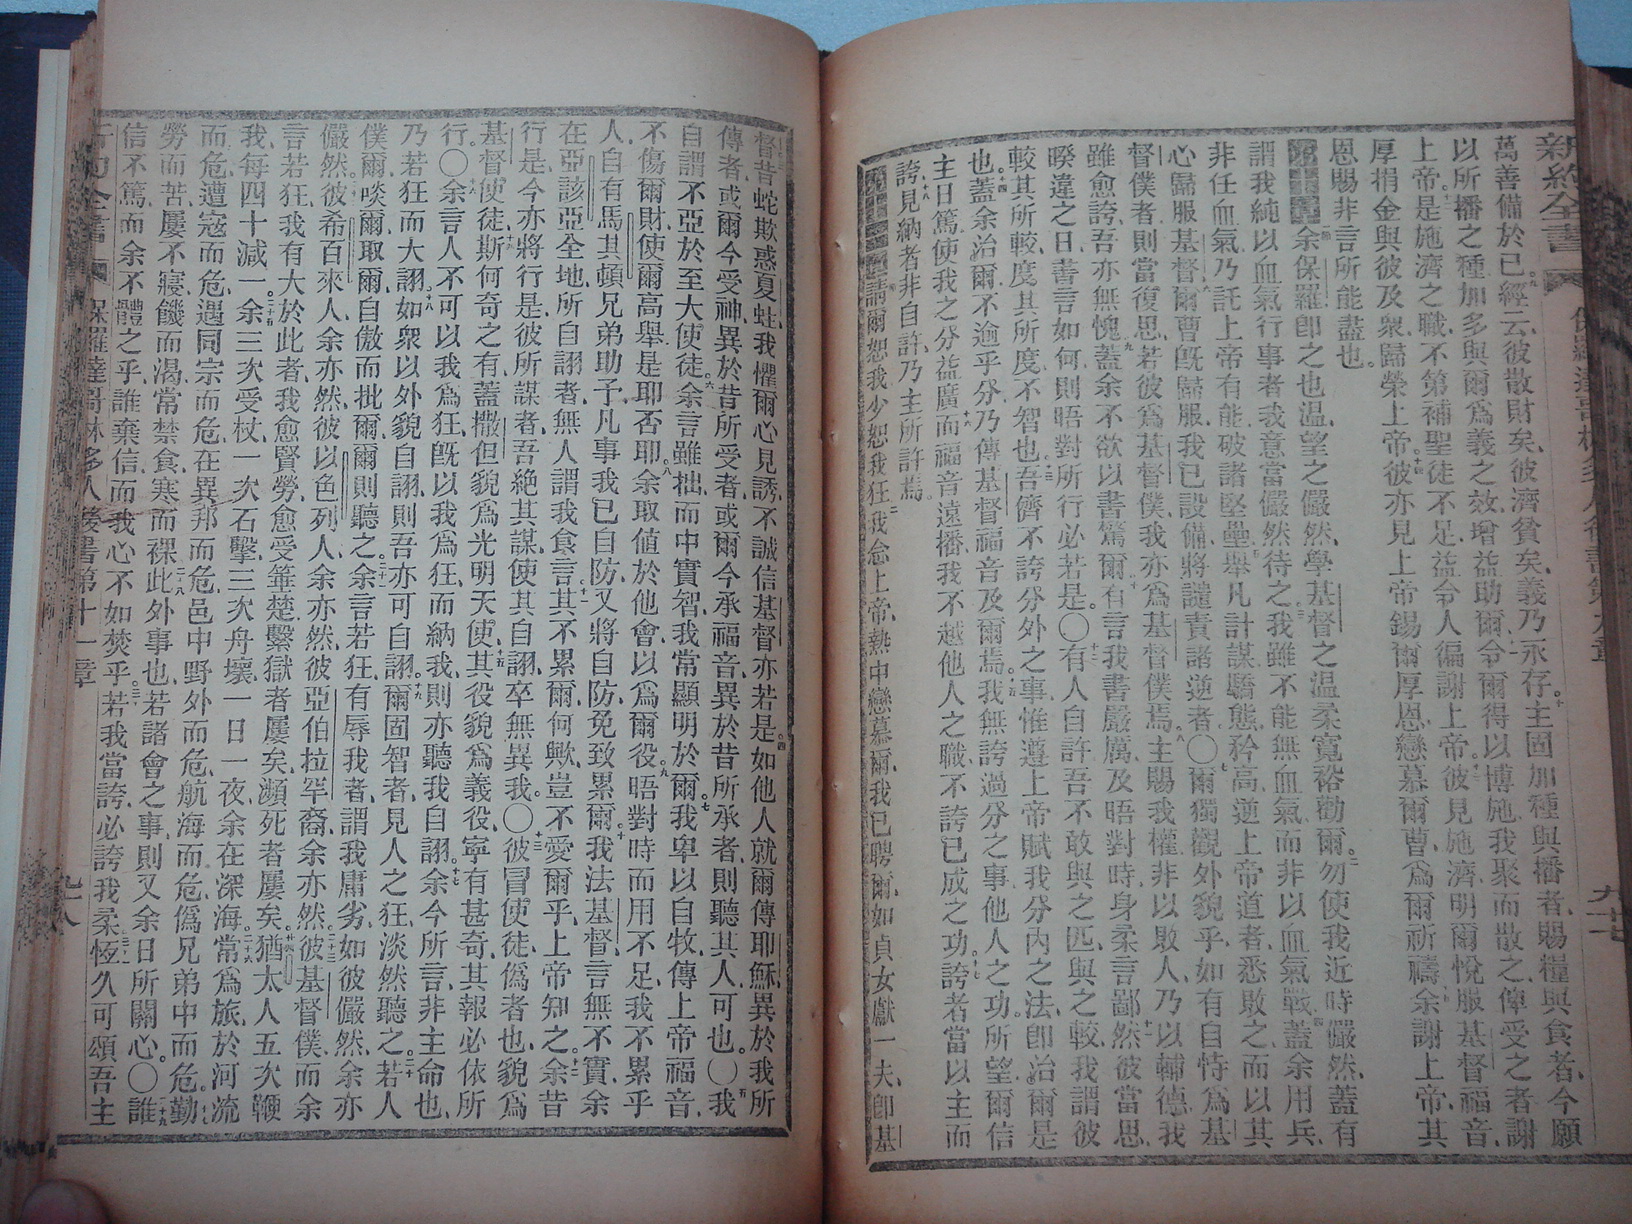 新約全書 保羅達哥林多人後書第九章 九十七
萬善備於己、經云、彼散財矣、彼濟貧矣、義乃永存。主固加種與播者、賜糧與食者、今願
以所播之種、加多與爾、爲義之效、增益助爾、令爾得以博施、我聚而散之、俾受之者、謝
上帝、是施濟之職、不第補聖徒不足、益令人徧謝上帝、彼見施濟、明爾悅服基督福音、
厚捐金與彼及衆、歸榮上帝、彼亦見上帝錫爾厚恩、戀慕爾曹、爲爾祈禱、余謝上帝、其
恩賜非言所能盡也。
余保羅卽之也温、望之儼然、學基督之温柔寬裕勸爾、勿使我近時儼然、蓋有
謂我純以血氣行事者、我意當儼然待之、我雖不能無血氣、而非以血氣戰、蓋余用兵、
非任血氣、乃託上帝有能、破諸堅壘、舉凡計謀驕態、矜高逆上帝道者、悉敗之、而以其
心歸服基督、爾曹旣歸服、我已設備、將譴責諸逆者、〇爾獨觀外貌乎、如有自恃爲基
督僕者、則當復思、若彼爲基督僕、我亦爲基督僕焉、主賜我權、非以敗人、乃以輔德、我
雖愈誇、吾亦無愧、蓋余不欲以書驚爾、有言我書嚴厲、及晤對時、身柔言鄙、然彼當思、
睽違之日、書言如何、則晤對所行必若是。〇有人自許、吾不敢與之匹、與之較、我謂彼
較其所較、度其所度、不智也、吾儕不誇分外之事、惟遵上帝賦我分內之法、卽治爾是
也、蓋余治爾、不逾乎分、乃傳基督福音及爾焉。我無誇過分之事、他人之功、所望爾信
主日篤、使我之分益廣、而福音遠播、我不越他人之職、不誇已成之功、誇者當以主而
誇、見納者非自許、乃主所許焉。
請爾恕我少恕我狂、我念上帝熱中戀慕爾、我已聘爾、如貞女獻一夫、卽基
督、昔蛇欺惑夏蛙、我懼爾心見誘、不誠信基督亦若是。如他人就爾傳耶穌、異於我所
傳者、或爾今受神、異於昔所受者、或爾今承福音、異於昔所承者、則聽其人可也。〇我
自謂不亞於至大使徒。余言雖拙、而中實智、我常顯明於爾。我卑以自牧、傳上帝福音、
不傷爾財、使爾高舉、是耶否耶。余取値於他會、以爲爾役、晤對時而用不足、我不累乎
人、自有馬其頓兄弟助予、凡事我已自防、又將自防、免致累爾。我法基督、言無不實、余
在亞該亞全地、所自詡者、無人謂我食言、其不累爾何歟、豈不愛爾乎、上帝知之。余昔
行是、今亦將行是、彼所謀者、吾絕其謀、使其自詡、卒無異我。〇彼冒使徒、僞者也、貌爲
基督使徒、斯何奇之有、蓋撒但貌爲光明天使、其役貌爲義役、寧有甚奇、其報必依所
行。〇余言人不可以我爲狂、旣以我爲狂、而納我、則亦聽我自詡。余今所言、非主命也、
乃若狂而大詡、如衆以外貌自詡、則吾亦可自詡。爾固智者、見人之狂、淡然聽之。若人
僕爾、啖爾、取爾、自傲而批爾、爾則聽之。余言若狂、有辱我者、謂我庸劣、如彼儼然、余亦
儼然。彼希百來人、余亦然、彼以色列人、余亦然、彼亞伯拉罕裔、余亦然。彼基督僕、而余
言若狂、我有大於此者、我愈賢勞、愈受箠楚、繫獄者屢矣、瀕死者屢矣。猶太人五次鞭
我、每四十減一。余三次受杖、一次石擊、三次舟壞、一日一夜、余在深海。常爲旅、於河流
而危、遭寇而危、遇同宗而危、在異邦而危、邑中野外而危、航海而危、僞兄弟中而危。勤
勞而苦、屢不寢、饑而渴、常禁食、寒而裸。此外事也、若諸會之事、則又余日所關心。〇誰
信不篤、而余不體之乎、誰棄信、而我心不如焚乎。若我當誇、必誇我柔。恆久可頌吾主
保羅達哥林多人後書第十一章 九十八